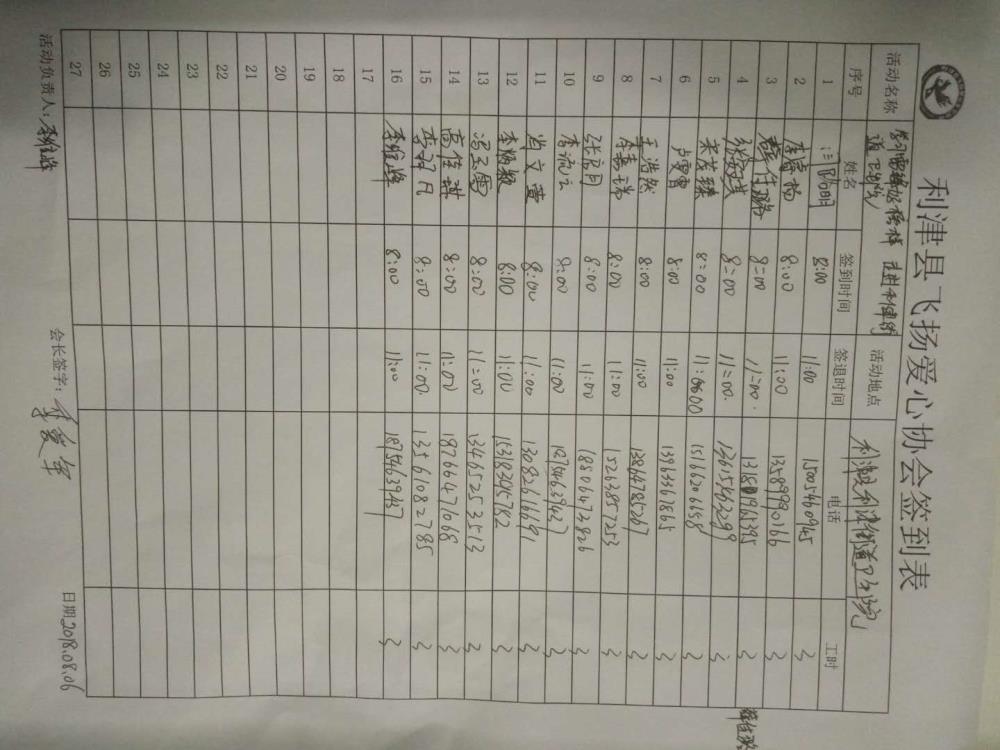 利津县飞扬爱心协会签到表
活动名称 学习雷锋好榜样 走进利津街道卫生院 活动地点 利津县利津街道卫生院
序号 姓名 签到时间 签退时间 电话 工时
1 8:00 11:00 15005460945 3
2 李睿杨 8:00 11:00 13589990166 3
3 薛佳璐 8:00 11:00 13181965395 3
4 8:00 11:00 12615463299 3
5 8:00 11:00 15166206658 3
6 卢雯雪 8:00 11:00 13963367865 3
7 王浩然 8:00 11:00 13864785267 3
8 李嘉瑞 8:00 11:00 15263857253 3
9 张家月 8:00 11:00 18806473826 3
10 李流云 8:00 11:00 18754639437 3
11 尚文萱 8:00 11:00 13082616691 3
12 李炳颖 8:00 11:00 15318345782 3
13 冯玉雯 8:00 11:00 13465253513 3
14 高佳琪 8:00 11:00 18766471068 3
15 8:00 11:00 13561082785 3
16 李维峰 8:00 11:00 18754639437 3
17
18
19
20
21
22
23
24
25
26
27
活动负责人:李维峰 会长签字: 日期2018.08.06
薛佳璐